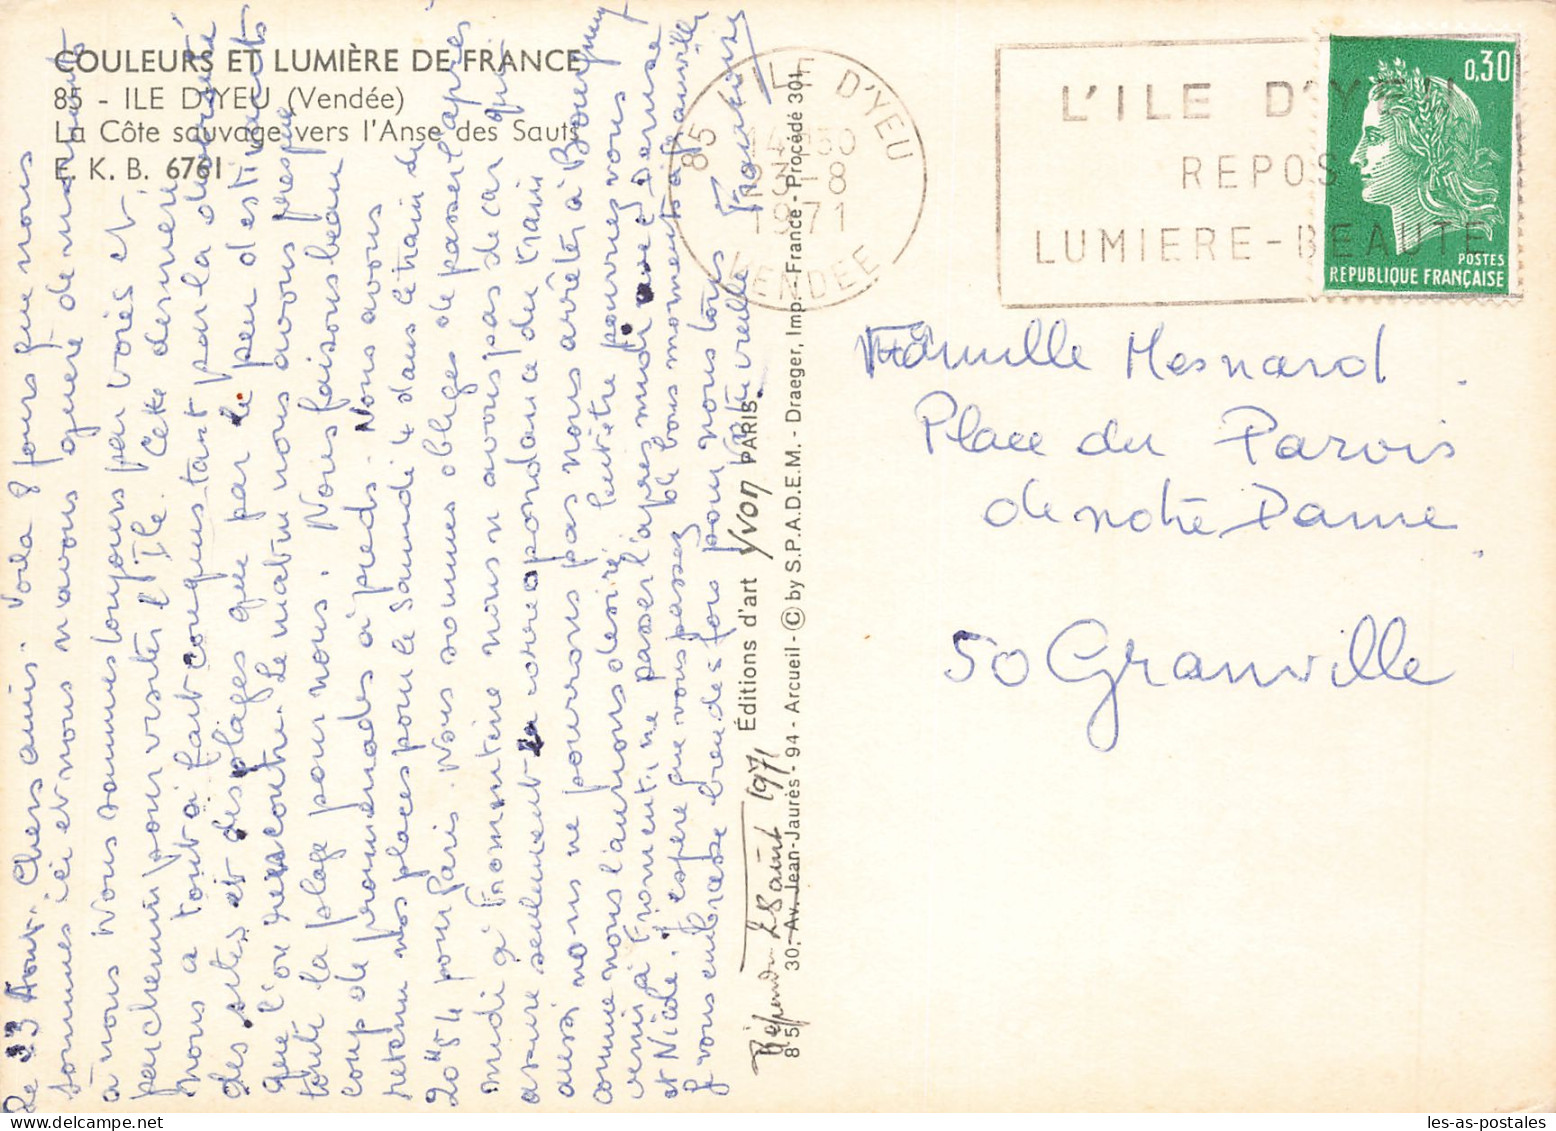 COULEURS ET LUMIÈRE DE FRANCE
85 - ILE D'YEU (Vendée)
La Côte sauvage vers l'Anse des Sauts
E. K. B. 6761
85 L'ILE D'YEU
14H30
8
1971
VENDEE
L'ILE D'YEU
REPOS
LUMIERE-BEAUTE
0,30
POSTES
REPUBLIQUE FRANÇAISE
Famille Mesnard
Place du Parvis
de notre Dame
50 Granville
Le 23 Aout. Chers amis. Voila 8 jours que nous
sommes ici et nous n'avons guère de minute
à nous. Nous sommes toujours par voies et
par chemin pour visiter l'Ile. Cette dernière
nous a tout à fait conquis tant par la diversité
des sites et des plages que par le peu d'estivants
que l'on rencontre. Le matin nous avons presque
toute la plage pour nous. Nous faisons beaucoup
de promenades à pieds. Nous avons
retenu nos places pour le Samedi 4 dans le train de
20H54 pour Paris. Nous sommes obligés de passer l'après
midi à Fromentine nous n'avons pas de car qui
assure seulement la correpondance du train
aussi nous ne pourrons pas nous arrêter à Bourgneuf
comme nous l'aurions désiré. Peut être pourrez vous
venir à Fromentine passer l'après midi avec Denise
et Nicole. J'espère que vous passez de bons moments à Granville
Je vous embrasse bien des fois pour nous tous
Votre vieille Françoise
Répondu 28 aout 1971
Éditions d'art Yvon PARIS
30. Av. Jean-Jaurès - 94 - Arcueil - © by S.P.A.D.E.M. - Draeger, Imp. - France - Procédé 301
85